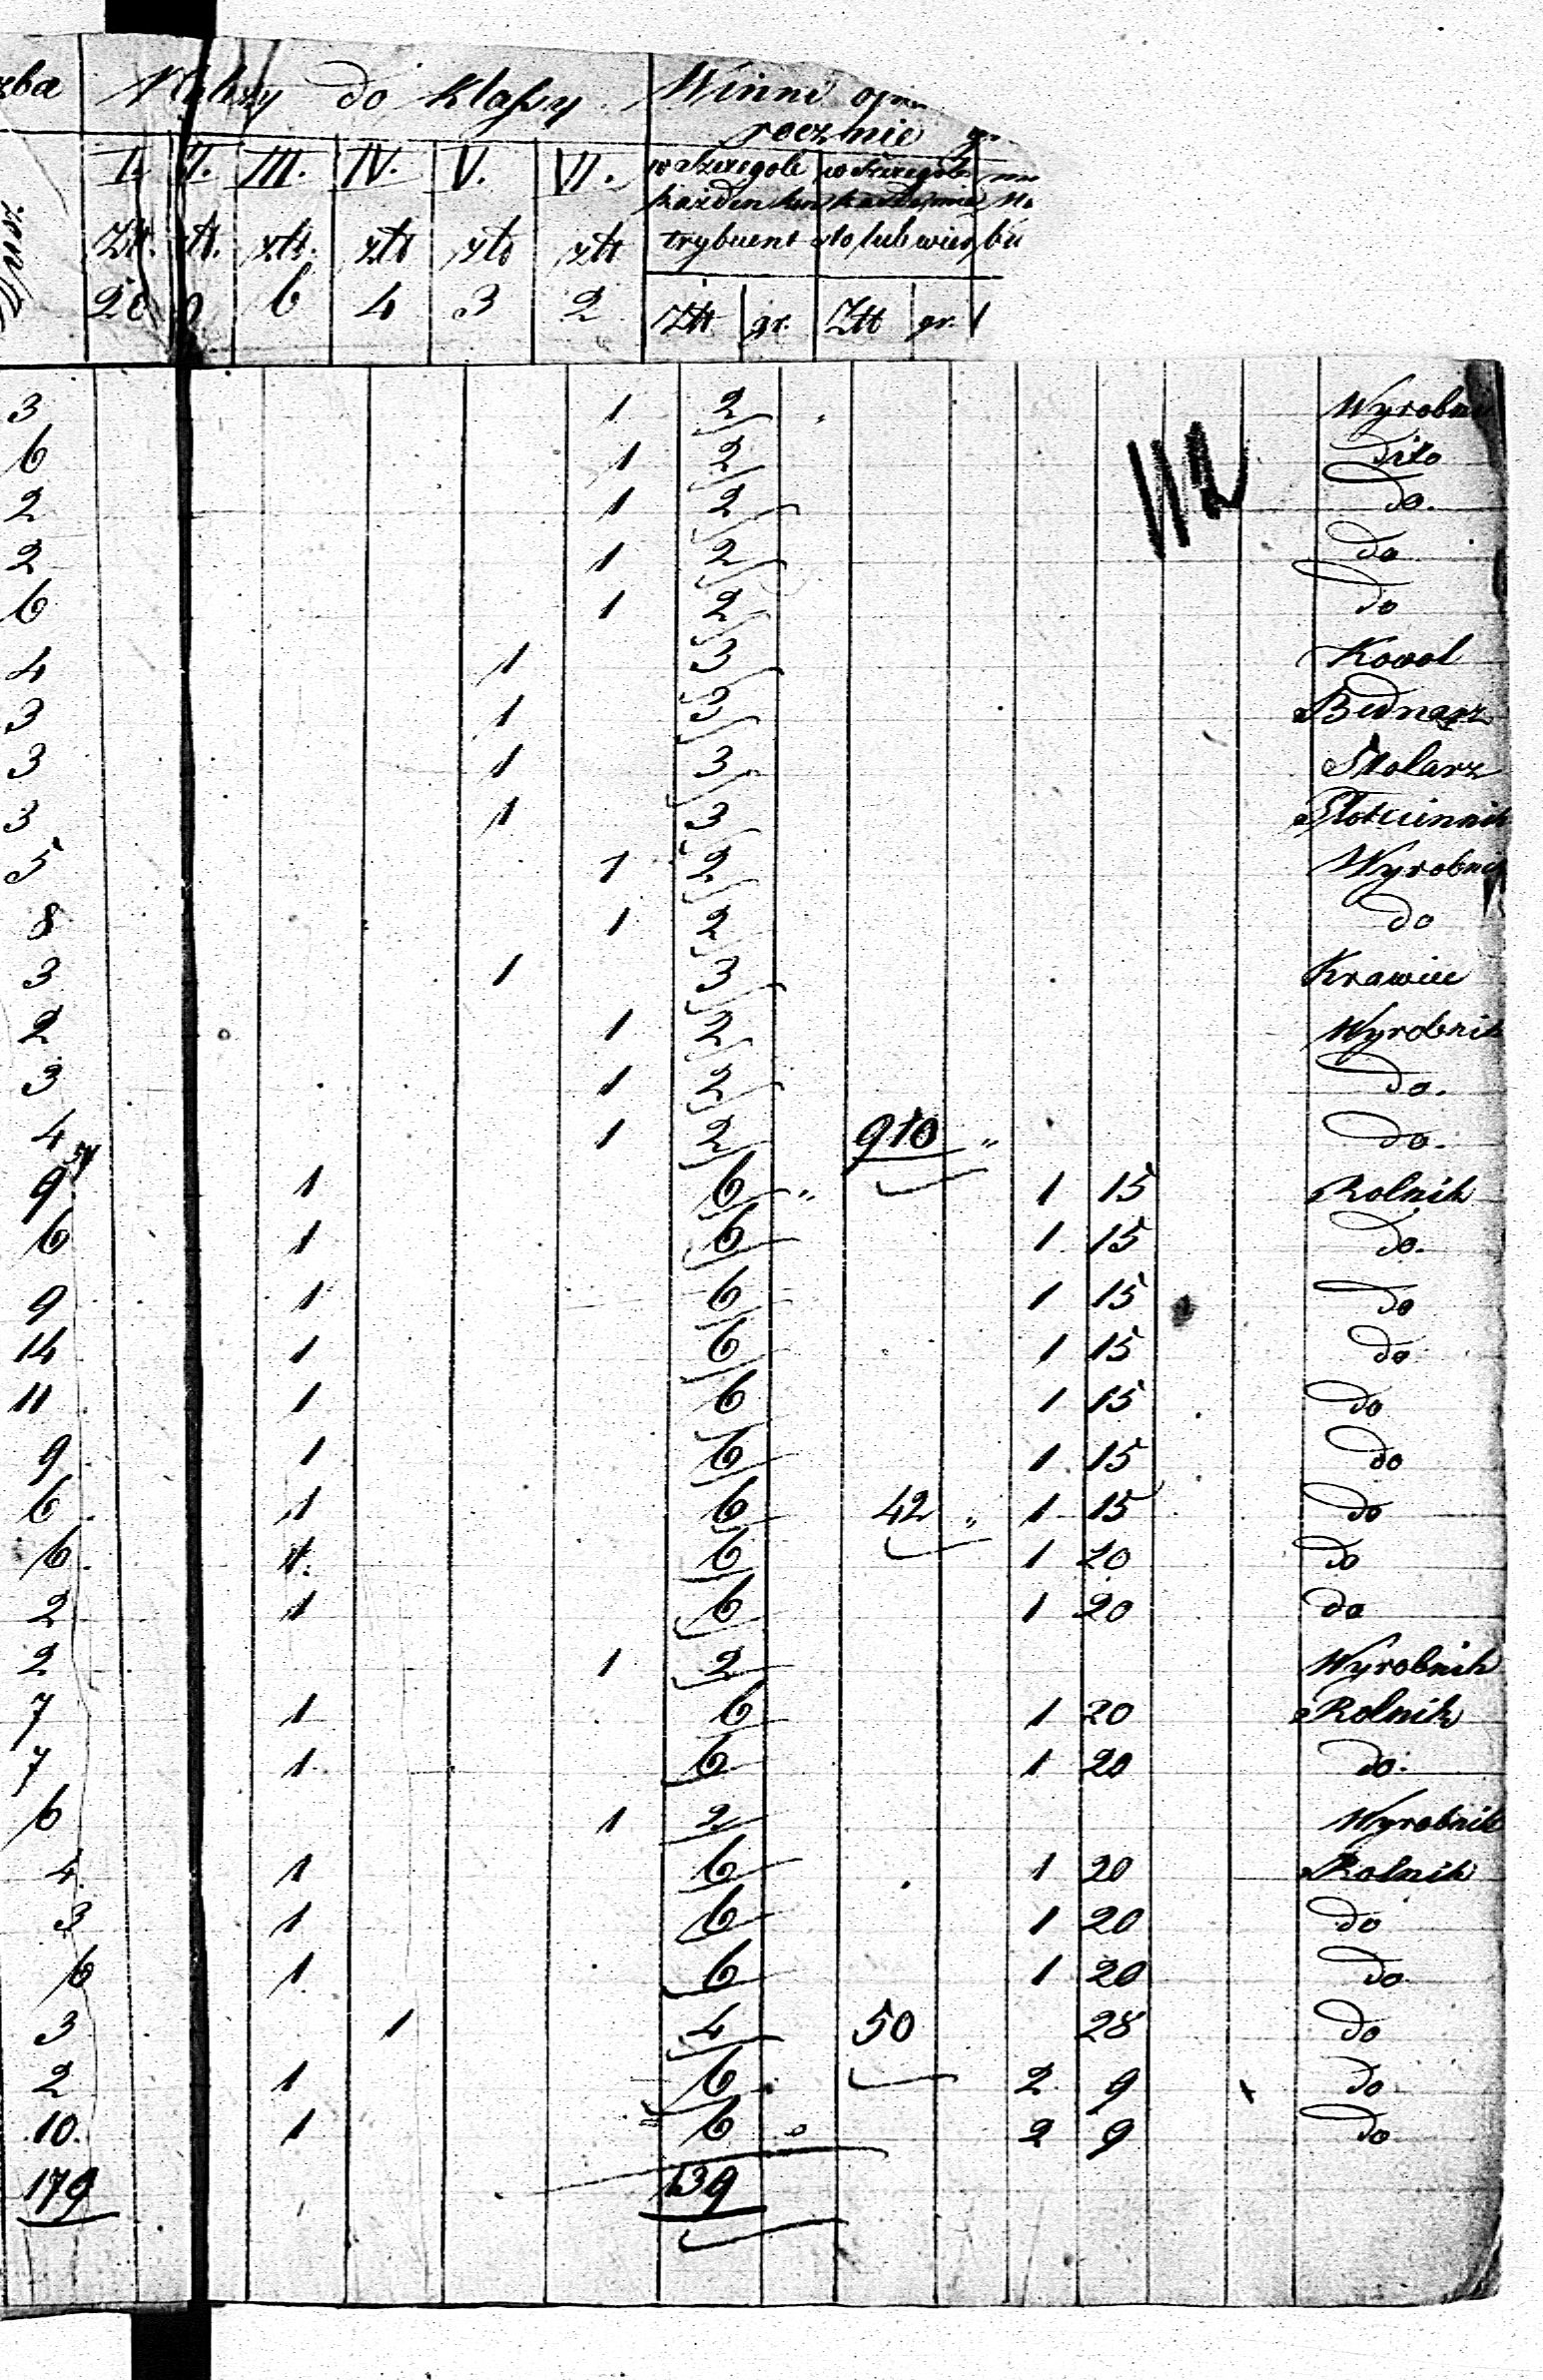 do Klassy Winni
rocznie
I. II. III. IV. V. VI. w szczególe
trybuent
Zlt. xlt. xlt xlt xlt
6 4 3 2 Zltt gr. Zltt gr.
3 1 2
6 1 2 Dito
2 1 2 do.
2 1 2 do
6 1 2 do
4 1 3 Kowal
3 1 3 Bednarz
3 1 3 Stolarz
3 1 3
5 1 2
8 1 2 do
3 1 3 Krawiec
2 1 2 Wyrobnik
3 1 2 do.
4 1 2 910 " do.
9 1 6 " 1 15 Rolnik
6 1 6 1 15 do.
9 1 6 1 15 do
14 1 6 1 15 do
11 1 6 1 15 do
9 1 6 1 15 do
6 1 6 42 " 1 15 do
6 1 6 1 20 do
2 1 6 1 20 do
2 1 2 Wyrobnik
7 1 6 1 20 Rolnik
7 1 6 1 20 do.
6 1 2 Wyrobnik
4 1 6 1 20 Rolnik
3 1 6 1 20 do
6 1 6 1 20 do
3 1 4 50 28 do
2 1 6 2 9 do
10. 1 6 2 9 do
179 139